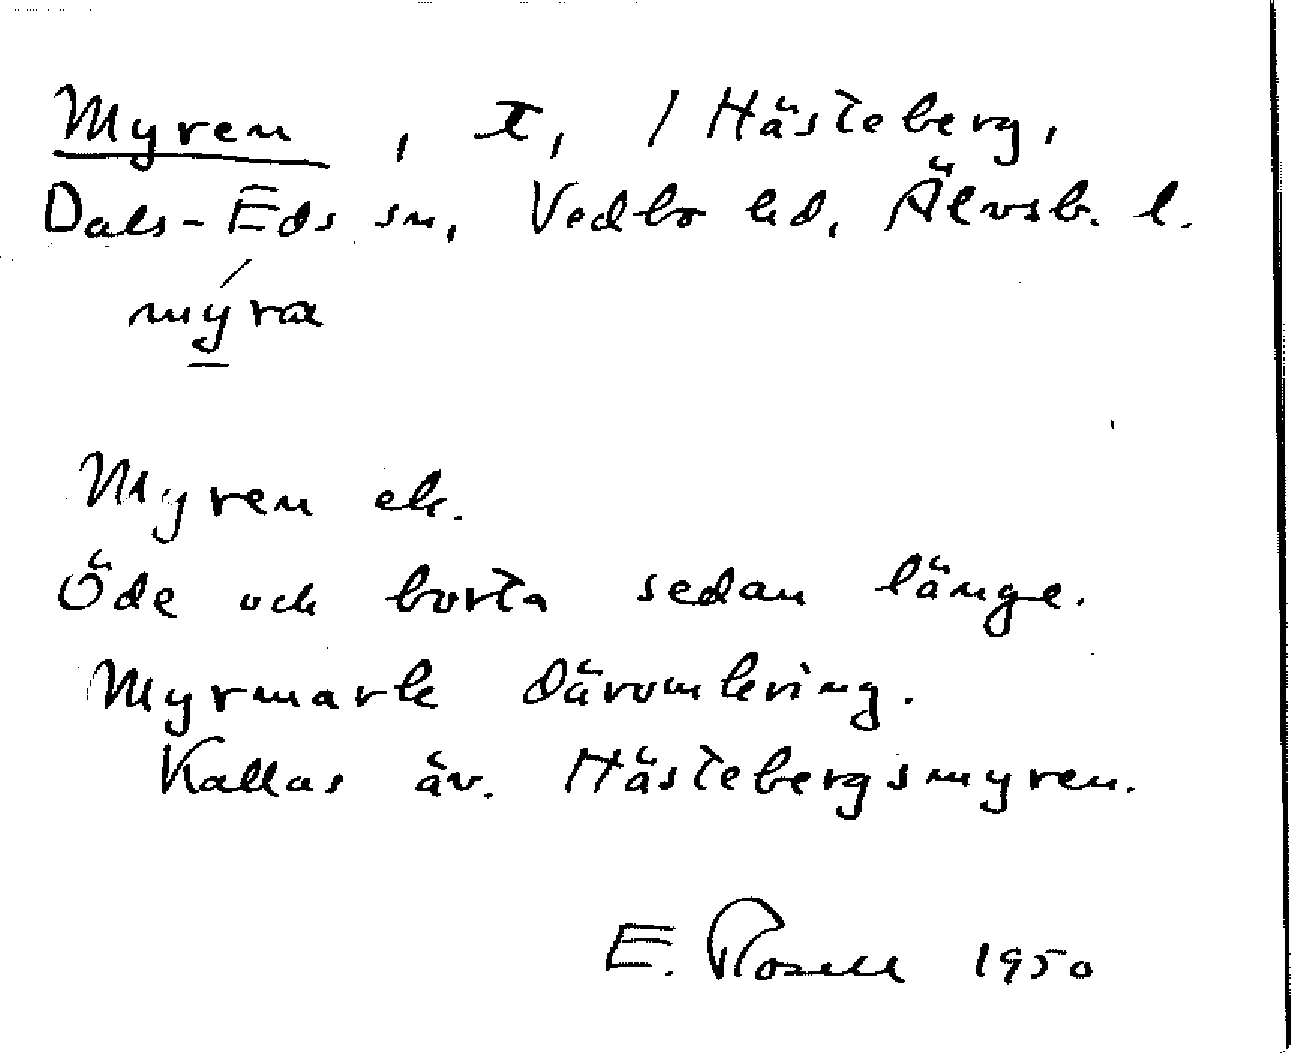 Myren, t, / Hästeberg,
Dals-Eds sn, Vedbo hd, Älvsb. l.
mýra
Myren ek.
Öde och borta sedan länge.
Myrmark däromkring.
Kallas äv. Hästebergsmyren.
E. Rosell 1950